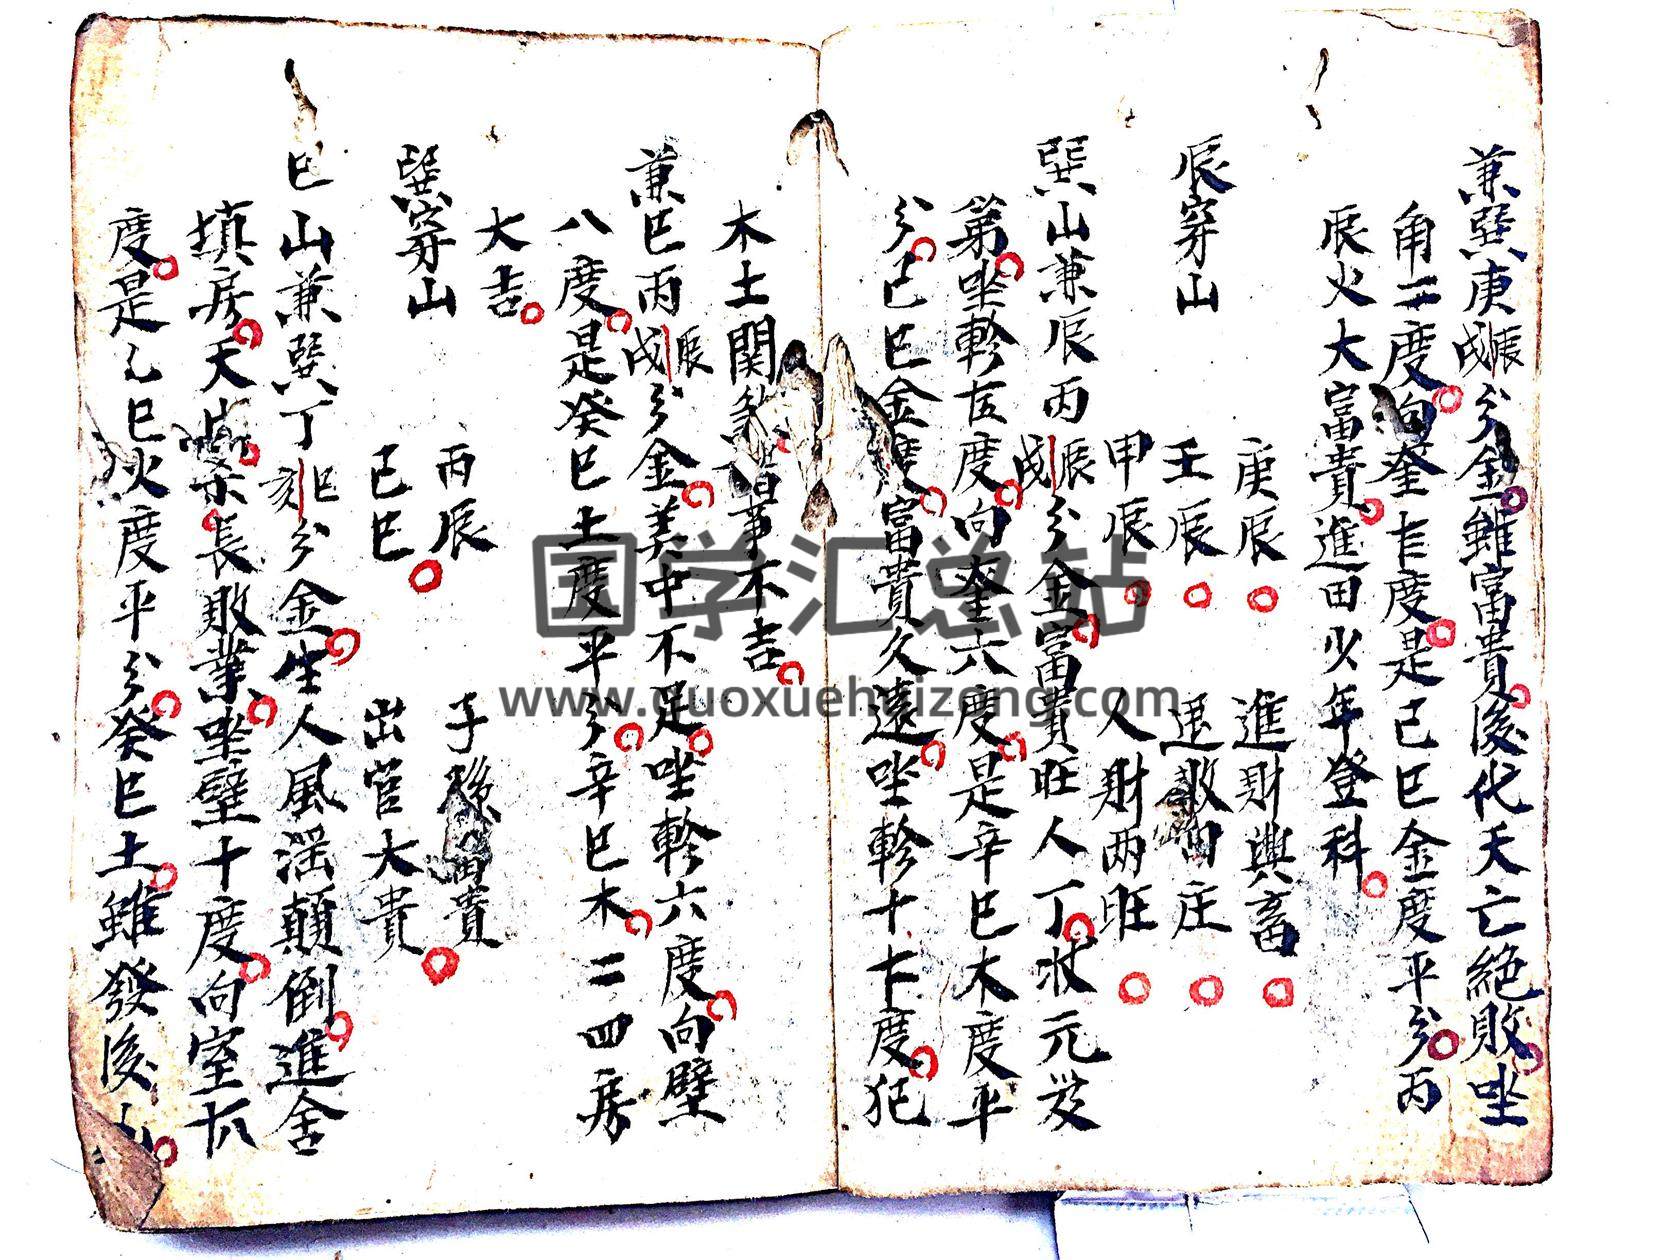 兼巽庚辰戌分金雖富貴後代夭亡絕敗坐
角二度向奎七度是己巳金度平分丙
辰火大富貴進田少年登科
辰穿山
庚辰 進財興畜
壬辰 退敗田庄
甲辰 人財两旺
巽山兼辰丙辰戌分金富貴旺人丁状元發
第坐軫五度向奎六度是辛巳木度平
分己巳金度富貴久遠坐軫十七度犯
木土関煞 事不吉
兼巳丙辰戌分金美中不足坐軫六度向壁
八度是癸巳土度平分辛巳木二四房
大吉
巽穿山
丙辰 子孫富貴
己巳 出官大貴
巳山兼巽丁巳亥分金生人風滛顛倒進舍
填房夭 長敗業坐壁十度向室十八
度是乙巳火度平分癸巳土雖發後
国学汇总站
www.guoxuehuizong.com